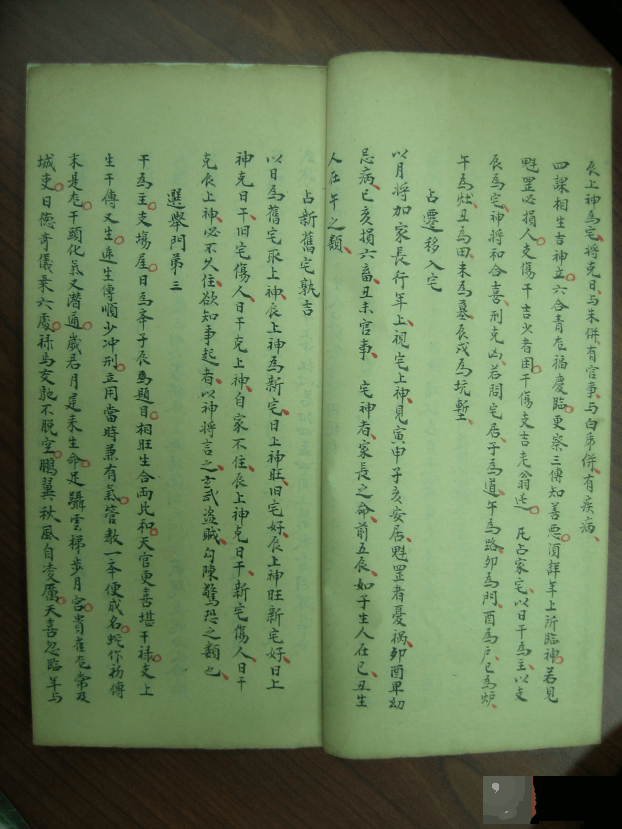 辰上神為宅將克日与朱併有官事与白虎併有疾病
四課相生吉神並六合青龙福慶臨更察三傳知善恶須詳年上所臨神若見
魁罡必損人支傷干吉少者困干傷支吉老翁迍 凡占家宅以日干為主以支
辰為宅神將和合喜刑克凶若問宅居子為道午為路卯為門酉為戶巳為炉
午為灶丑為田未為墓辰戌為坑塹
占遷移入宅
以月将加家長行年上視宅上神見寅申子亥安居魁罡者憂禍卯酉卑幼
忌病巳亥損六畜丑未官事 宅神者家長之命前五辰如子生人在巳丑生
人在午之類
占新舊宅孰吉
以日為舊宅取上神辰上神為新宅日上神旺旧宅好辰上神旺新宅好日上
神克日干旧宅傷人日干克上神自家不住辰上神克日干新宅傷人日干
克辰上神必不久住欲知事起者以神將言之玄武盗賊勾陳驚恐之類也
選舉門第三
干為主支塲屋日為斎子辰為題目相旺生合両比和天官更喜堪干禄支上
生干傳又生递生傳順少冲刑立用當時兼有氣管教一斎便成名蛇作初傳
末是龙干頭化氣又潛通歲君月建来生命足躡雲梯步月宮貴雀龙常及
城吏日德奇儀乗六處禄馬交馳不脱空鵬翼秋風自凌厲天喜忽臨年与